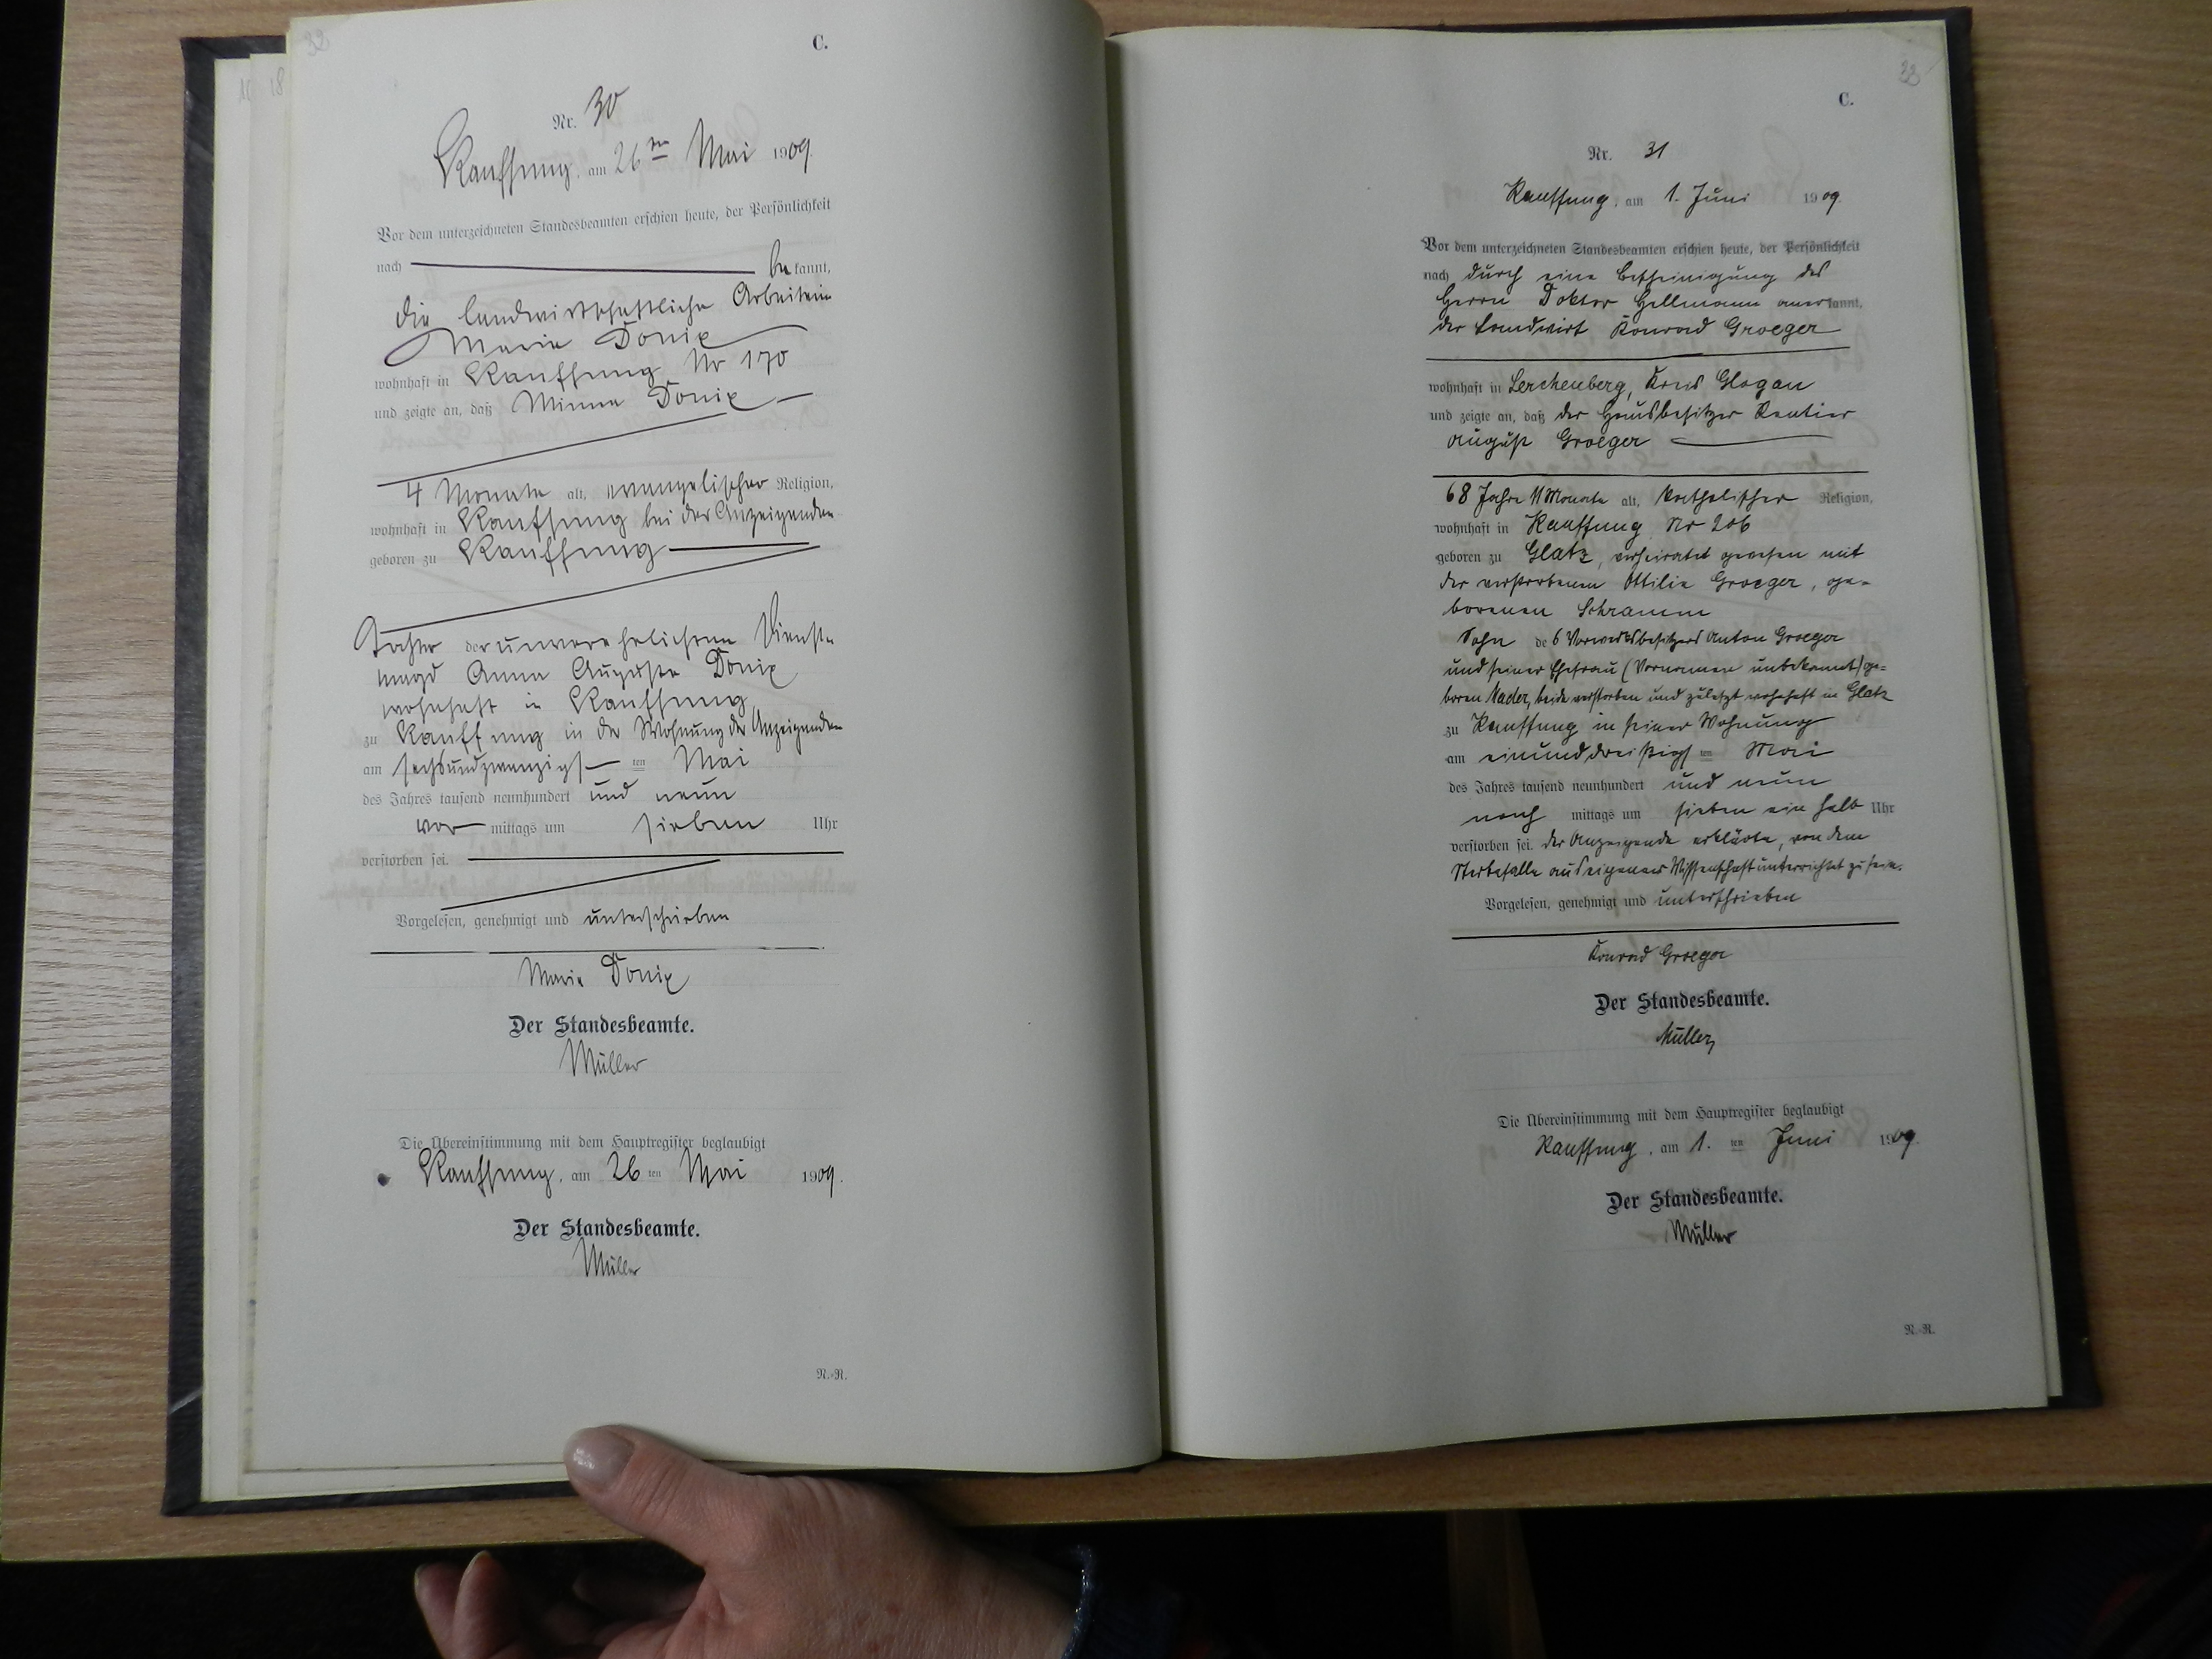 32
C.
Nr. 30
Kauffung, am 26ten Mai 1909.
Vor dem unterzeichneten Standesbeamten erschien heute, der Persönlichkeit
nach be kannt,
die landwirthschaftliche Arbeiterin
Maria Donix
wohnhaft in Kauffung Nr 170
und zeigte an, daß Minna Donix
4 Monate alt, evangelischer Religion,
wohnhaft in Kauffung bei der Anzeigenden
geboren zu Kauffung
Tochter der unverehelichten Dienst-
magd Anna Auguste Donix
wohnhaft in Kauffung
zu Kauffung in der Wohnung der Anzeigenden
am sechsundzwanzigs ten Mai
des Jahres tausend neunhundert und neun
vor mittags um sieben Uhr
verstorben sei.
Vorgelesen, genehmigt und unterschrieben
Marie Donix
Der Standesbeamte.
Müller
Die Übereinstimmung mit dem Hauptregister beglaubigt
Kauffung, am 26 ten Mai 1909.
Der Standesbeamte.
Müller
N.-R.
33
C.
Nr. 31
Kauffung, am 1. Juni 1909.
Vor dem unterzeichneten Standesbeamten erschien heute, der Persönlichkeit
nach durch eine Bescheinigung des
Herrn Doktor Hellmann aner kannt,
der Landwirt Konrad Groeger
wohnhaft in Lerchenberg, Kreis Glogau
und zeigte an, daß der Hausbesitzer Rentier
August Groeger
68 Jahre 11 Monate alt, katholischer Religion,
wohnhaft in Kauffung Nr 206
geboren zu Glatz, verheiratet gewesen mit
der verstorbenen Ottilie Groeger, ge-
borenen Schramm
Sohn des Vorwerksbesitzers Anton Groeger
und seiner Ehefrau (Vornamen unbekannt) ge-
boren Nader, beide verstorben und zuletzt wohnhaft in Glatz
zu Kauffung in seiner Wohnung
am einunddreißigs ten Mai
des Jahres tausend neunhundert und neun
nach mittags um sieben ein halb Uhr
verstorben sei. Der Anzeigende erklärte, von dem
Sterbefalle aus eigener Wissenschaft unterrichtet zu sein.
Vorgelesen, genehmigt und unterschrieben
Konrad Groeger
Der Standesbeamte.
Müller
Die Übereinstimmung mit dem Hauptregister beglaubigt
Kauffung, am 1. ten Juni 1909.
Der Standesbeamte.
Müller
N.-R.